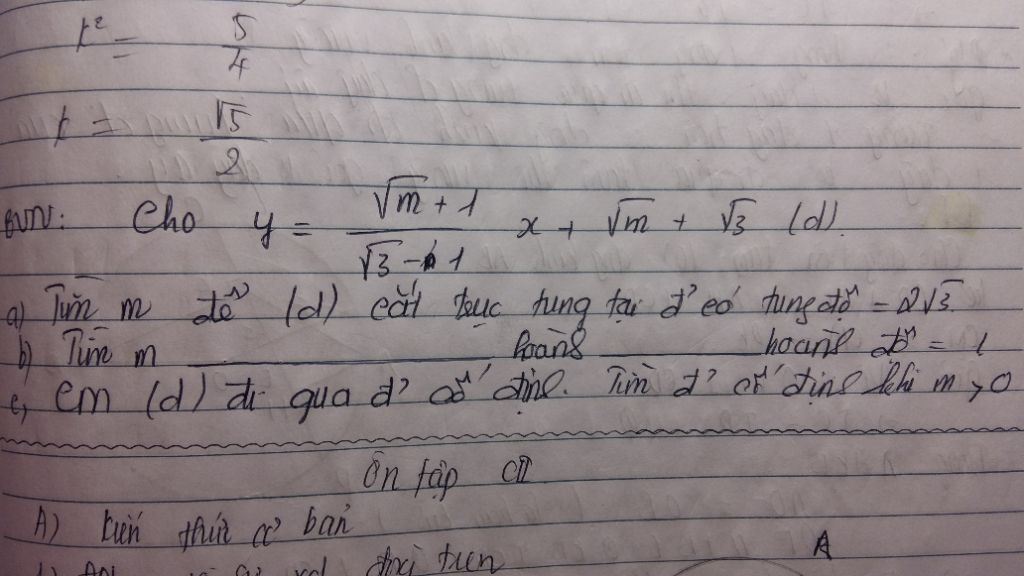 t² = 5/4
t = √5/2
BVN: Cho y = (√m + 1)/(√3 - 1) x + √m + √3 (d).
a) Tìm m để (d) cắt trục tung tại đ' có tung độ = 2√3.
b) Tìm m ________ hoành ________ hoành độ = 1
c, CM (d) đi qua đ' cố định. Tìm đ' cố định khi m > 0
Ôn tập CII
A) kiến thức cơ bản
A